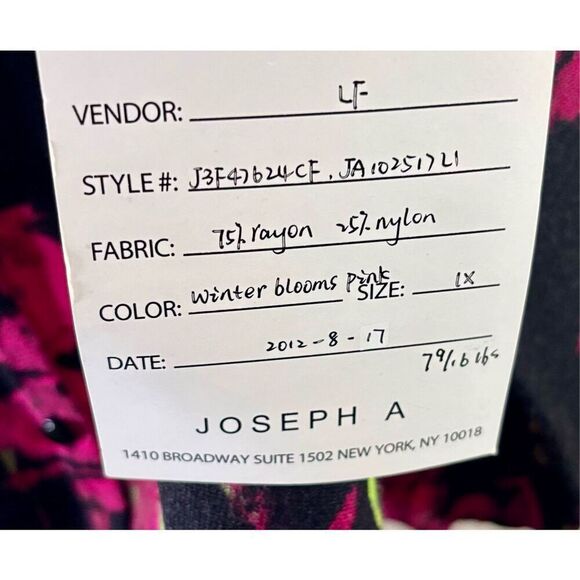 VENDOR: LF
STYLE #: J3F47624CF, JA10251721
FABRIC: 75% rayon 25% nylon
COLOR: winter blooms pink SIZE: 1X
DATE: 2012-8-17
lbs
JOSEPH A
1410 BROADWAY SUITE 1502 NEW YORK, NY 10018